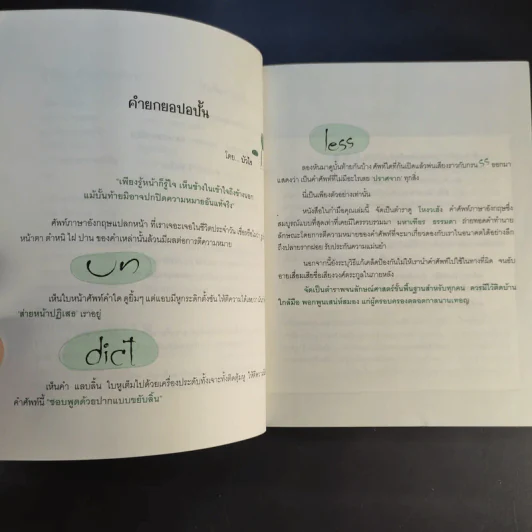 คำยกยอปอปั้น
โดย บัวไร
"เพียงรู้หน้าก็รู้ใจ เห็นข้างในเข้าใจถึงข้างนอก
แม้บั้นท้ายมิอาจปกปิดความหมายอันแท้จริง"
ศัพท์ภาษาอังกฤษแปลกหน้า ที่เราเจอะเจอในชีวิตประจำวัน
หน้าตา ตำหนิ ไฝ ปาน ของคำเหล่านั้นล้วนมีผลต่อการตีความหมาย
un
เห็นใบหน้าคำศัพท์คำใด ดูยิ้มๆ แต่แอบมีหูกระดิกตั้งชัน ให้ตีความได้เลยว่า
'ส่ายหน้าปฏิเสธ' เราอยู่
dict
เห็นคำ แลบลิ้น ใบหูเต็มไปด้วยเครื่องประดับทั้งเจาะทั้งติดตุ้มหู
คำศัพท์นี้ "ชอบพูดด้วยปากแบบขยับลิ้น"
less
ลองหันมาดูบั้นท้ายกันบ้าง ศัพท์ใดที่ก้นเปิดแล้วพ่นเสียงราวกับกรน SS ออกมา
แสดงว่า เป็นคำศัพท์ที่ไม่มีอะไรเลย ปราศจาก ทุกสิ่ง
นี่เป็นเพียงตัวอย่างเท่านั้น
หนังสือในกำมือคุณเล่มนี้ จัดเป็นตำรา โหงวเฮ้ง คำศัพท์ภาษาอังกฤษซึ่ง
สมบูรณ์แบบที่สุดเท่าที่เคยมีใครรวบรวมมา มหาเพียร ธรรมดา ถ่ายทอดคำทำนาย
ลักษณะโดยการตีความหมายของคำศัพท์ที่จะมาเกี่ยวดองกับเราในอนาคตได้อย่างลึก
ถึงปลายรากฝอย รับประกันความแม่นยำ
นอกจากนี้ยังระบุวิธีแก้เคล็ดป้องกันไม่ให้เรานำคำศัพท์ไปใช้ในทางที่ผิด จนอับ
อายเสื่อมเสียชื่อเสียงวงศ์ตระกูลในภายหลัง
จัดเป็นตำราพจนลักษณ์ศาสตร์ขั้นพื้นฐานสำหรับทุกคน ควรมีไว้ติดบ้าน
ใกล้มือ พอกพูนเสน่ห์สมอง แก่ผู้ครอบครองตลอดกาลนานเทอญ